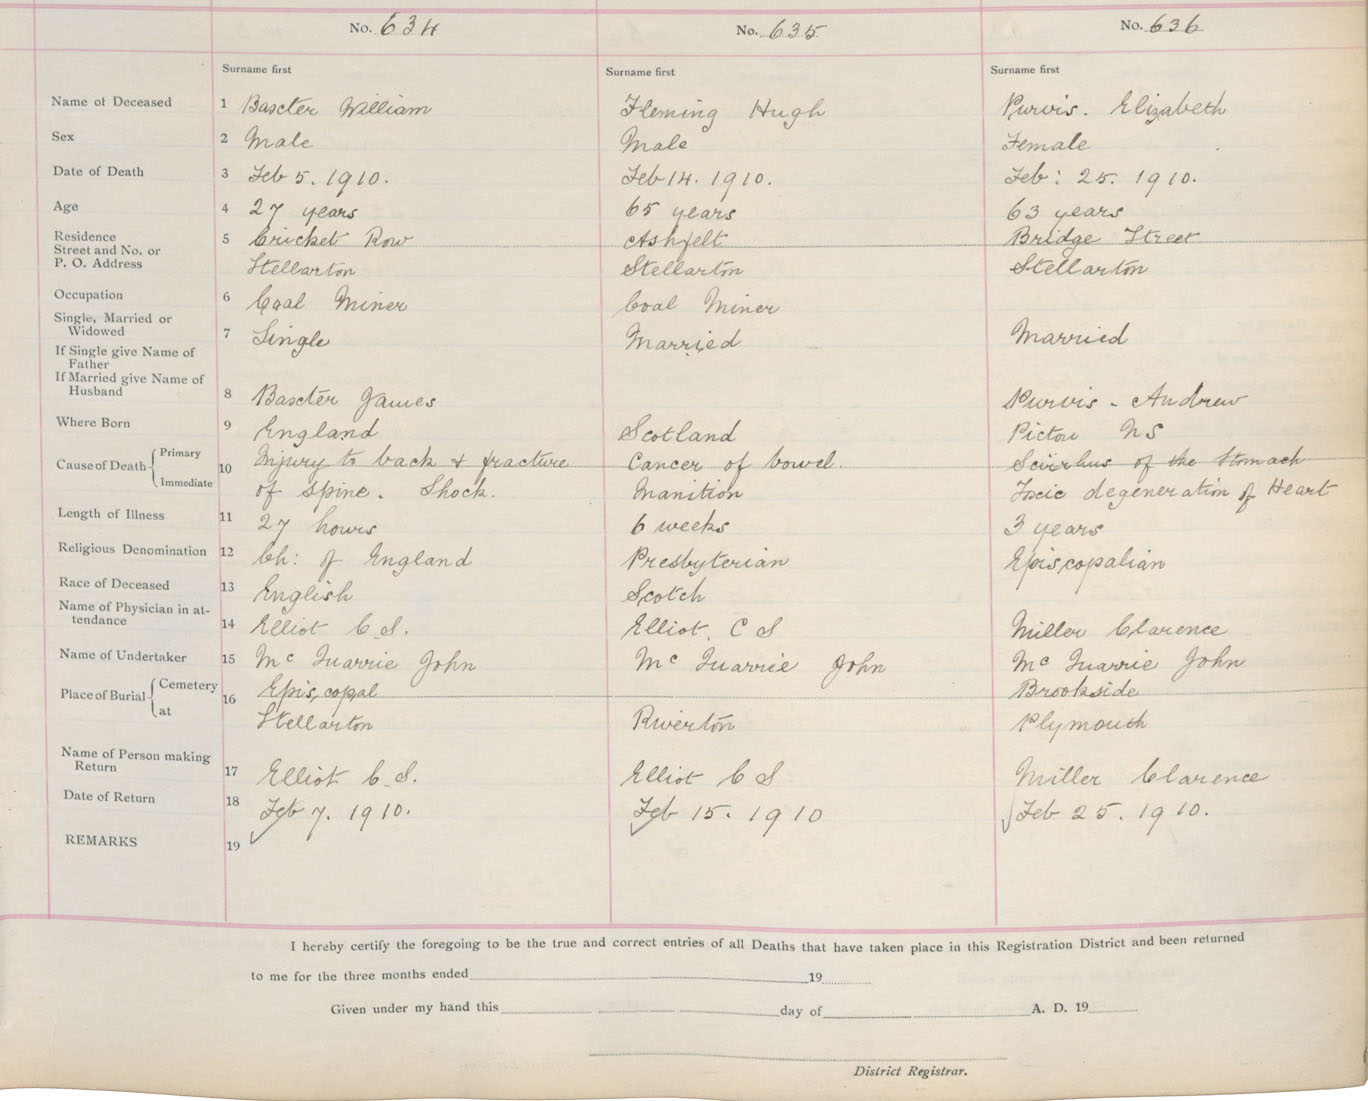 No. 634 No. 635 No. 636
Surname first Surname first Surname first
Name of Deceased 1 Baxter William Fleming Hugh Purvis. Elizabeth
Sex 2 Male Male Female
Date of Death 3 Feb 5. 1910. Feb 14. 1910. Feb: 25. 1910.
Age 4 27 years 65 years 63 years
Residence 5 Cricket Row Ashfelt Bridge Street
Street and No. or
P. O. Address Stellarton Stellarton Stellarton
Occupation 6 Coal Miner Coal Miner
Single, Married or
Widowed 7 Single Married Married
If Single give Name of
Father
If Married give Name of
Husband 8 Baxter James Purvis - Andrew
Where Born 9 England Scotland Pictou NS
Cause of Death Primary 10 Injury to back & fracture Cancer of bowel. Scirrhus of the Stomach
Immediate of spine. Shock. Inanition Toxic degeneration of Heart
Length of Illness 11 27 hours 6 weeks 3 years
Religious Denomination 12 Ch: of England Presbyterian Episcopalian
Race of Deceased 13 English Scotch
Name of Physician in at-
tendance 14 Elliot C. S. Elliot. C S Miller Clarence
Name of Undertaker 15 Mc Quarrie John Mc Quarrie John Mc Quarrie John
Place of Burial Cemetery 16 Episcopal Brookside
at Stellarton Riverton Plymouth
Name of Person making
Return 17 Elliot C. S. Elliot C S Miller Clarence
Date of Return 18 Feb 7. 1910. Feb 15. 1910 Feb 25. 1910.
REMARKS 19
I hereby certify the foregoing to be the true and correct entries of all Deaths that have taken place in this Registration District and been returned
to me for the three months ended 19
Given under my hand this day of A. D. 19
District Registrar.